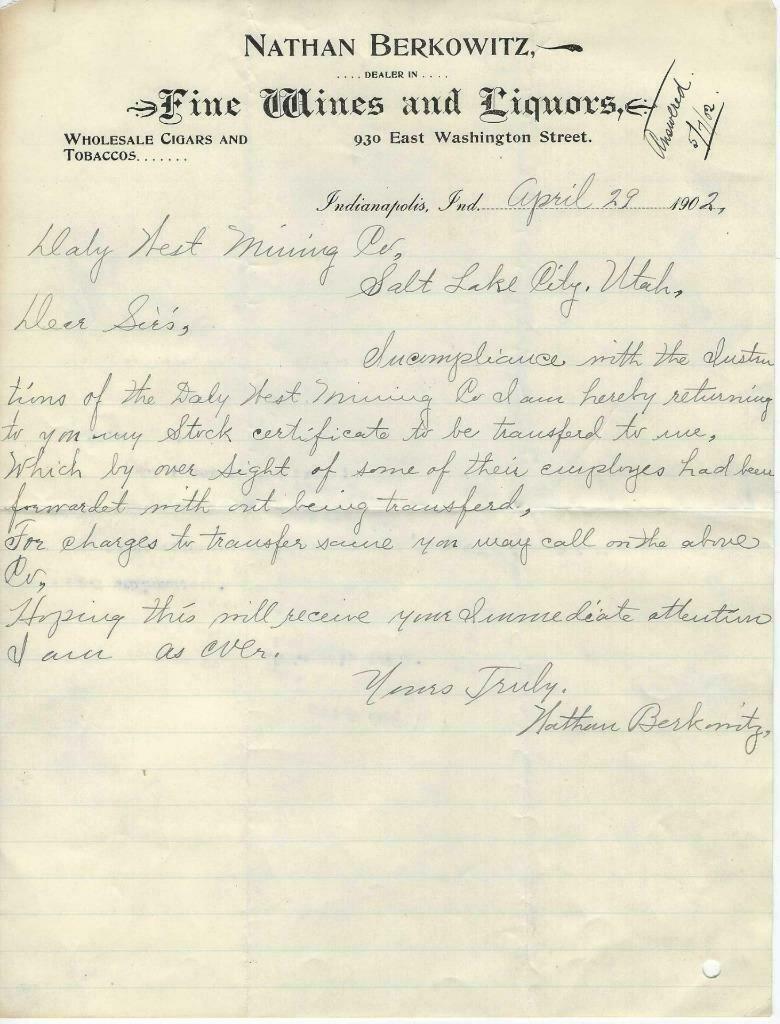 NATHAN BERKOWITZ,
.... DEALER IN ....
Fine Wines and Liquors,
WHOLESALE CIGARS AND
TOBACCOS.......
930 East Washington Street.
Answered
5/7/02.
Indianapolis, Ind. April 29 1902,
Daly West Mining Co,
Salt Lake City. Utah,
Dear Sirs,
Incompliance with the Instru
tions of the Daly West Mining Co I am hereby returning
to you my Stock certificate to be transferd to me,
Which by over sight of some of their employes had been
forwardet with out being transferd,
For charges to transfer same you may call on the above
Co,
Hoping this will receive your Immediate attention
I am as ever.
Yours Truly.
Nathan Berkowitz,